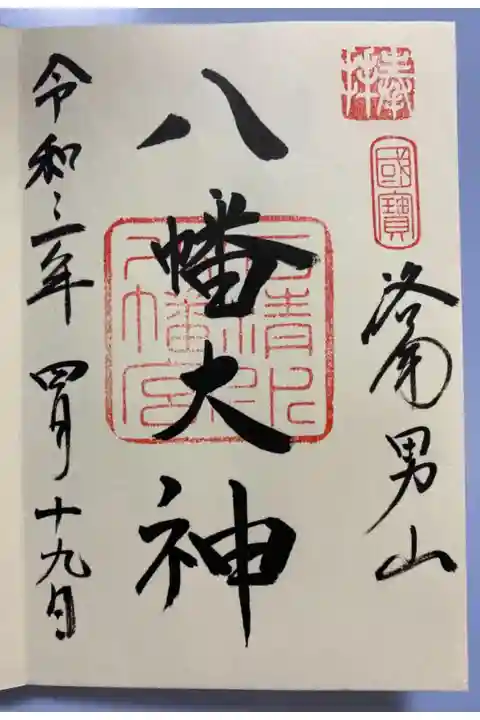 奉拝
國寶
洛南 男山
八幡大神
石清水八幡宮
令和三年 四月十九日